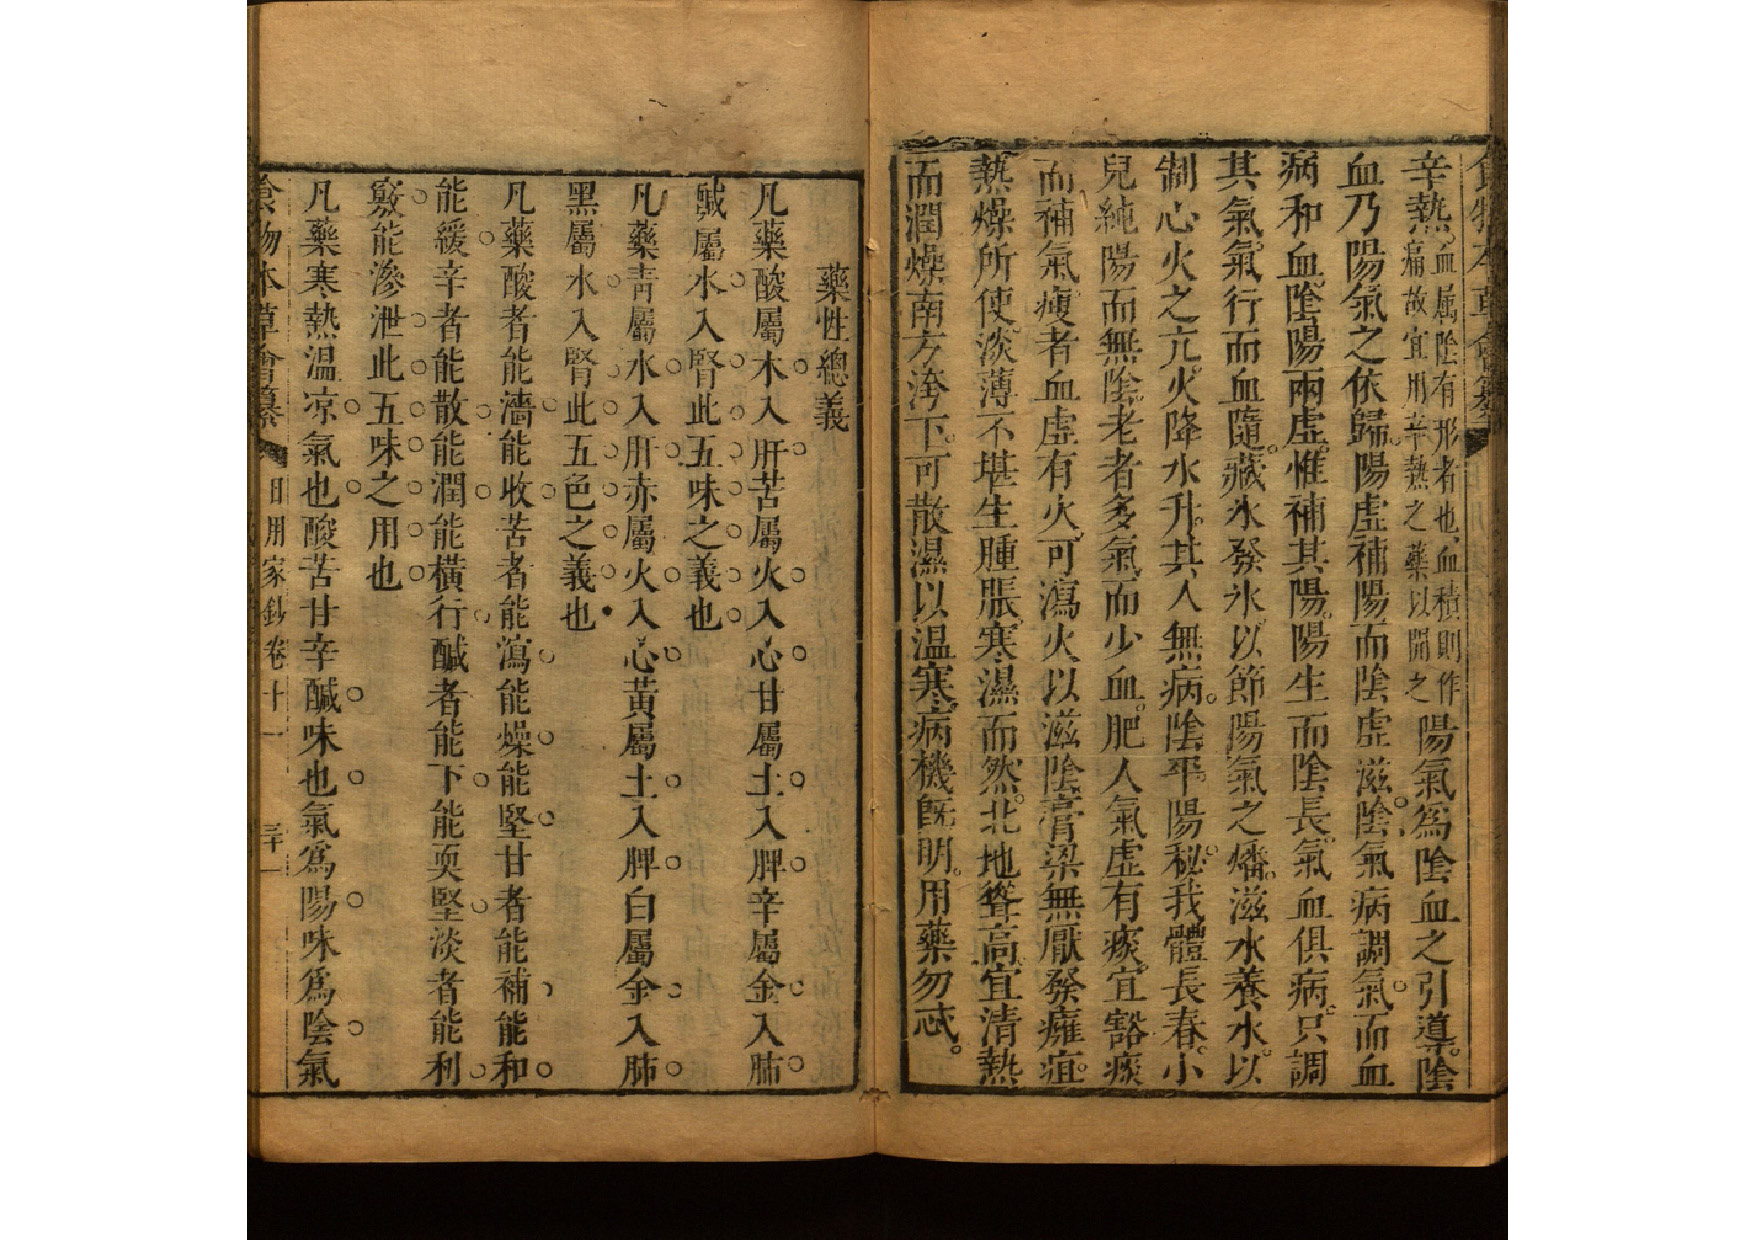 食物本草會纂
辛熱血属陰有形者也血積則作痛故宜用辛熱之藥以開之陽氣爲陰血之引導。陰
血乃陽氣之依歸。陽虛補陽而陰虛滋陰。氣病調氣。而血
病和血。陰陽兩虛。惟補其陽。陽生而陰長。氣血俱病。只調
其氣。氣行而血隨。藏氷發氷。以節陽氣之燔。滋水養水。以
制心火之亢。火降水升。其人無病。陰平。陽秘。我體長春。小
兒純陽而無陰。老者多氣而少血。肥人氣虛有痰。宜豁痰
而補氣。瘦者血虛有火。可瀉火以滋陰膏粱無厭發癰疽。
熱燥所使。淡薄不堪生腫脹。寒濕而然。北地聳高。宜清熱
而潤燥南方洿下。可散濕以温寒。病機旣明。用藥勿忒。
藥性總義
凡藥酸屬木入肝苦屬火入心甘屬土入脾辛屬金入肺
鹹屬水入腎此五味之義也
凡藥青屬木入肝赤屬火入心黃屬土入脾白屬金入肺
黑屬水入腎此五色之義也
凡藥酸者能濇能收苦者能瀉能燥能堅甘者能補能和
能緩辛者能散能潤能橫行鹹者能下能耎堅淡者能利
竅能滲泄此五味之用也
凡藥寒熱温凉氣也酸苦甘辛鹹味也氣爲陽味爲陰氣
食物本草會纂 日用家鈔卷十一 三十一